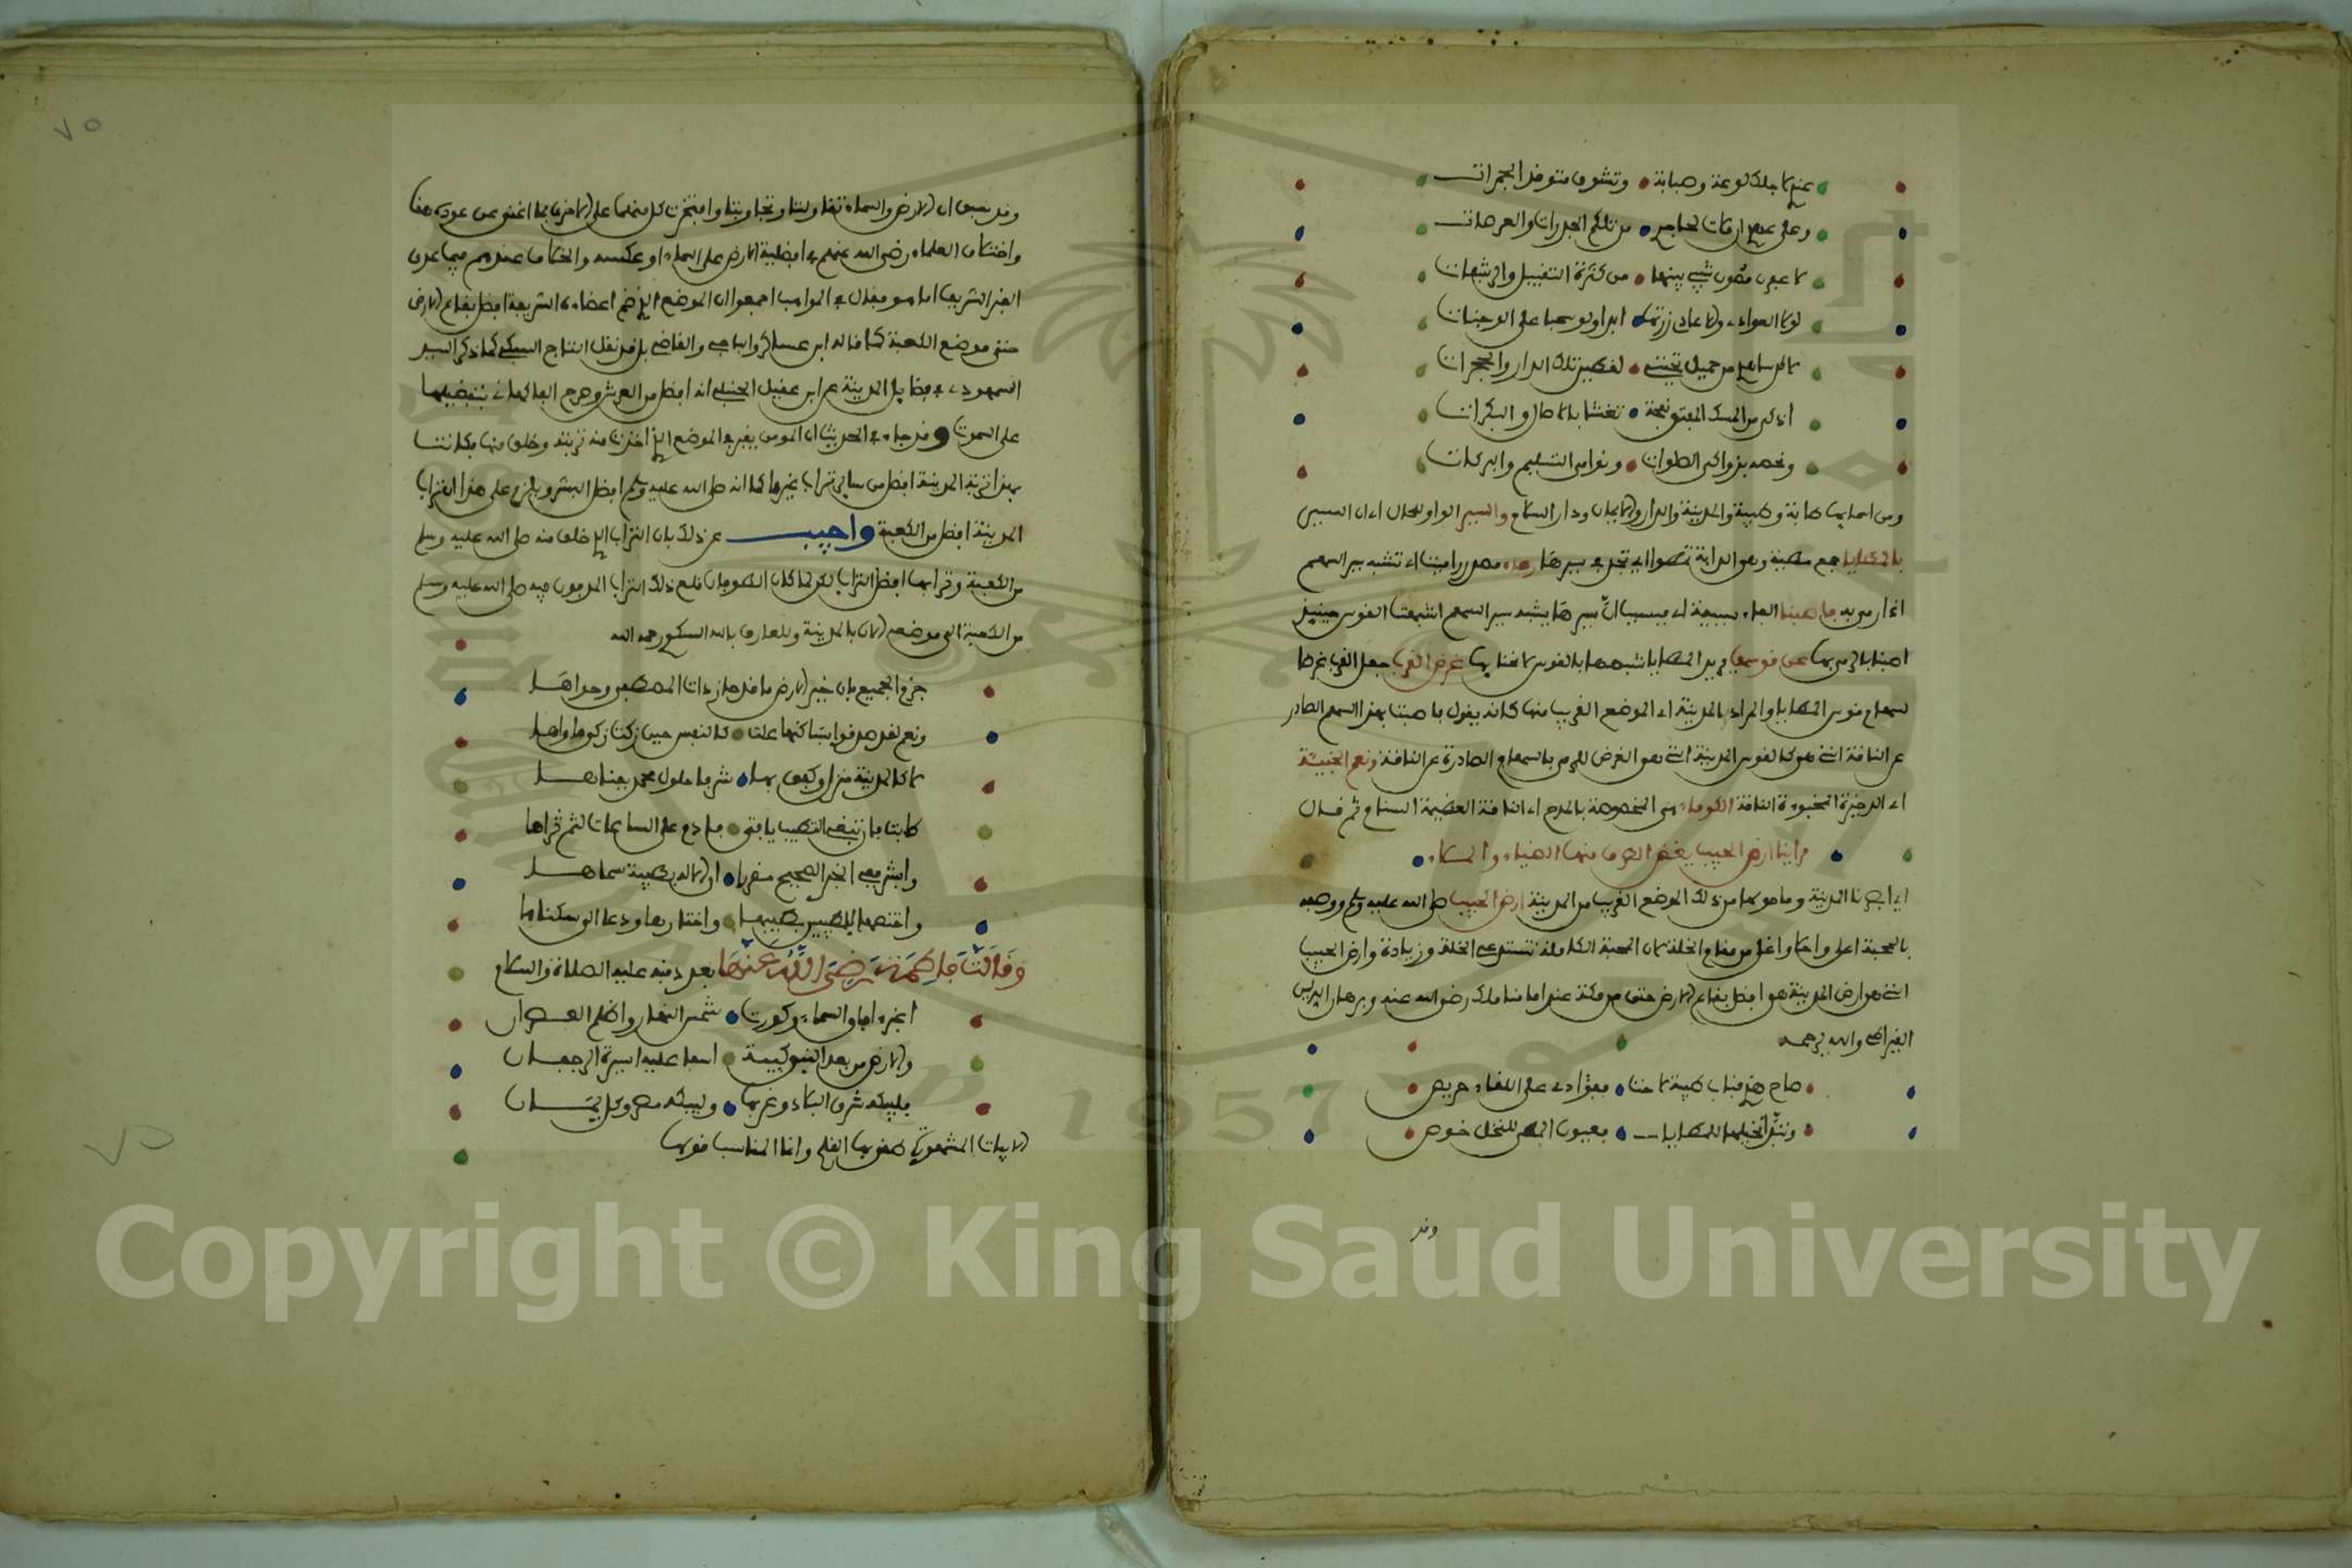 عندي لاجلك لوعة وصبابة • وتشوق متوقد الجمرات
وعلي عهد ان ملات محاجري • من تلكم الجدرات والعرصات
لاعفرن مصون شيبي بينها • من كثرة التقبيل والرشفات
لولا العوادي والاعادي زرتها • ابدا ولو سحبا على الوجنات
لاكن ساهدي من حميل تحيتي • لقطين تلك الدار والحجرات
اذكى من المسك المفتق نفحة • تغشاه بالاصال والبكرات
وتخصه بزواكي الصلوات • ونوامي التسليم والبركات
ومن اسمايها طابة وطيبة والمدينة والدار والايمان ودار السلام والسير الواو للحال اي ان السير
بالمطايا جمع مطية وهي الدابة تمطوا اي تجد في سيرها رماء مصدر راميت اي تشبه سير السهم
اذا رمي به فاصبنا الفاء سببية اي فبسبب ان سيرها يشبه سير السهم اشبهت القوس حينيذ
اصبنا بالرمي بها عن قوسها يريد المطايا شبهها بالقوس لانحنايها غرض القرب جعل القرب غرضا
لسهام قوس المطايا والمراد بالمدينة اي الموضع القريب منها كانه يقول فاصبنا بهذا السهم الصادر
عن الناقة التي هي كالقوس المدينة التي هي الغرض للرمي بالسهام الصادرة عن الناقة ونعم الخبيئة
اي الدخيرة المخبوءة الناقة الكوماء هي المخصوصة بالمدح اي الناقة العظيمة السنام ثم قال
فراينا ارض الحبيب يغض الطرف منها الضياء واللألاء
اي ابصرنا المدينة وما حولها من ذلك الموضع القريب من المدينة ارض الحبيب صلى الله عليه وسلم ووصفه
بالمحبة اعلى واحلا واغلى من مقام الخلة لان المحبة الكاملة تستدعي الخلة وزيادة وارض الحبيب
التي هي ارض المدينة هي افضل بقاع الارض حتى من مكة عند امامنا مالك رضي الله عنه وبرهان الدين
القيراطي والله يرحمه
صاح هذي قباب طيبة لاحت • وفؤادي على اللقاء حريص
وتبدت نخيلها للمطايا • فعيون المطي للنخل خوص
وقد
٧٥
وقد سبق ان الارض والسماء تقاولتا وتجاوبتا وافتخرت كل منهما على الاخرى بما اغنى عن عوده هنا
واختلاف العلماء رضي الله عنهم في افضلية الارض على السماء او عكسه والخلاف عندهم فيما عدى
القبر الشريف اما هو فقال في المواهب اجمعوا ان الموضع الذي ضم اعضاءه الشريفة افضل بقاع الارض
حتى موضع الكعبة كما قاله ابن عساكر والباجي والقاضي بل نقل التاج السبكي كما ذكر السيد
السمهودي في فضايل المدينة عن ابن عقيل الحنبلي انه افضل من العرش وصرح الفاكهاني بتفضيلها
على السموت وقد جاء في الحديث ان المومن يقبر في الموضع الذي اخذت منه تربته وخلق منها فكانت
بهذا تربة المدينة افضل من ساير تراب غيرها كما انه صلى الله عليه وسلم افضل البشر ويلزم على هذا ان تراب
المدينة افضل من الكعبة واجيب عن ذلك بان التراب الذي خلق منه صلى الله عليه وسلم
من الكعبة وترابها افضل التراب لكن لما كان الطوفان نقل ذلك التراب المدفون فيه صلى الله عليه وسلم
من الكعبة الى موضعه الان بالمدينة وللعارف بالله البكري رحمه الله
جزم الجميع بان خير الارض ما قد حاز ذات المصطفى وحواها
ونعم لقد صدقوا بساكنها علت • كالنفس حين زكت زكى ماواها
لا كالمدينة منزل وكفى بها • شرفا حلول محمد بفناها
وابشر ففي الخبر الصحيح مقررا • ان الاله بطيبة سماها
واختصها بالطيبين لطيبها • واختارها ودعا الى سكناها
وقالت فاطمة رضي الله عنها بعد دفنه عليه الصلاة والسلام
اغبر افاق السماء وكورت • شمس النهار واظلم العصران
والارض من بعد النبي كئيبة • اسفا عليه كثيرة الرجفان
فليبكه شرق البلاد وغربها • وليبكه مضر وكل يمان
الابيات المشهورة طغى بها القلم وانما المناسب قولها
٧٥
Copyright © King Saud University
1957